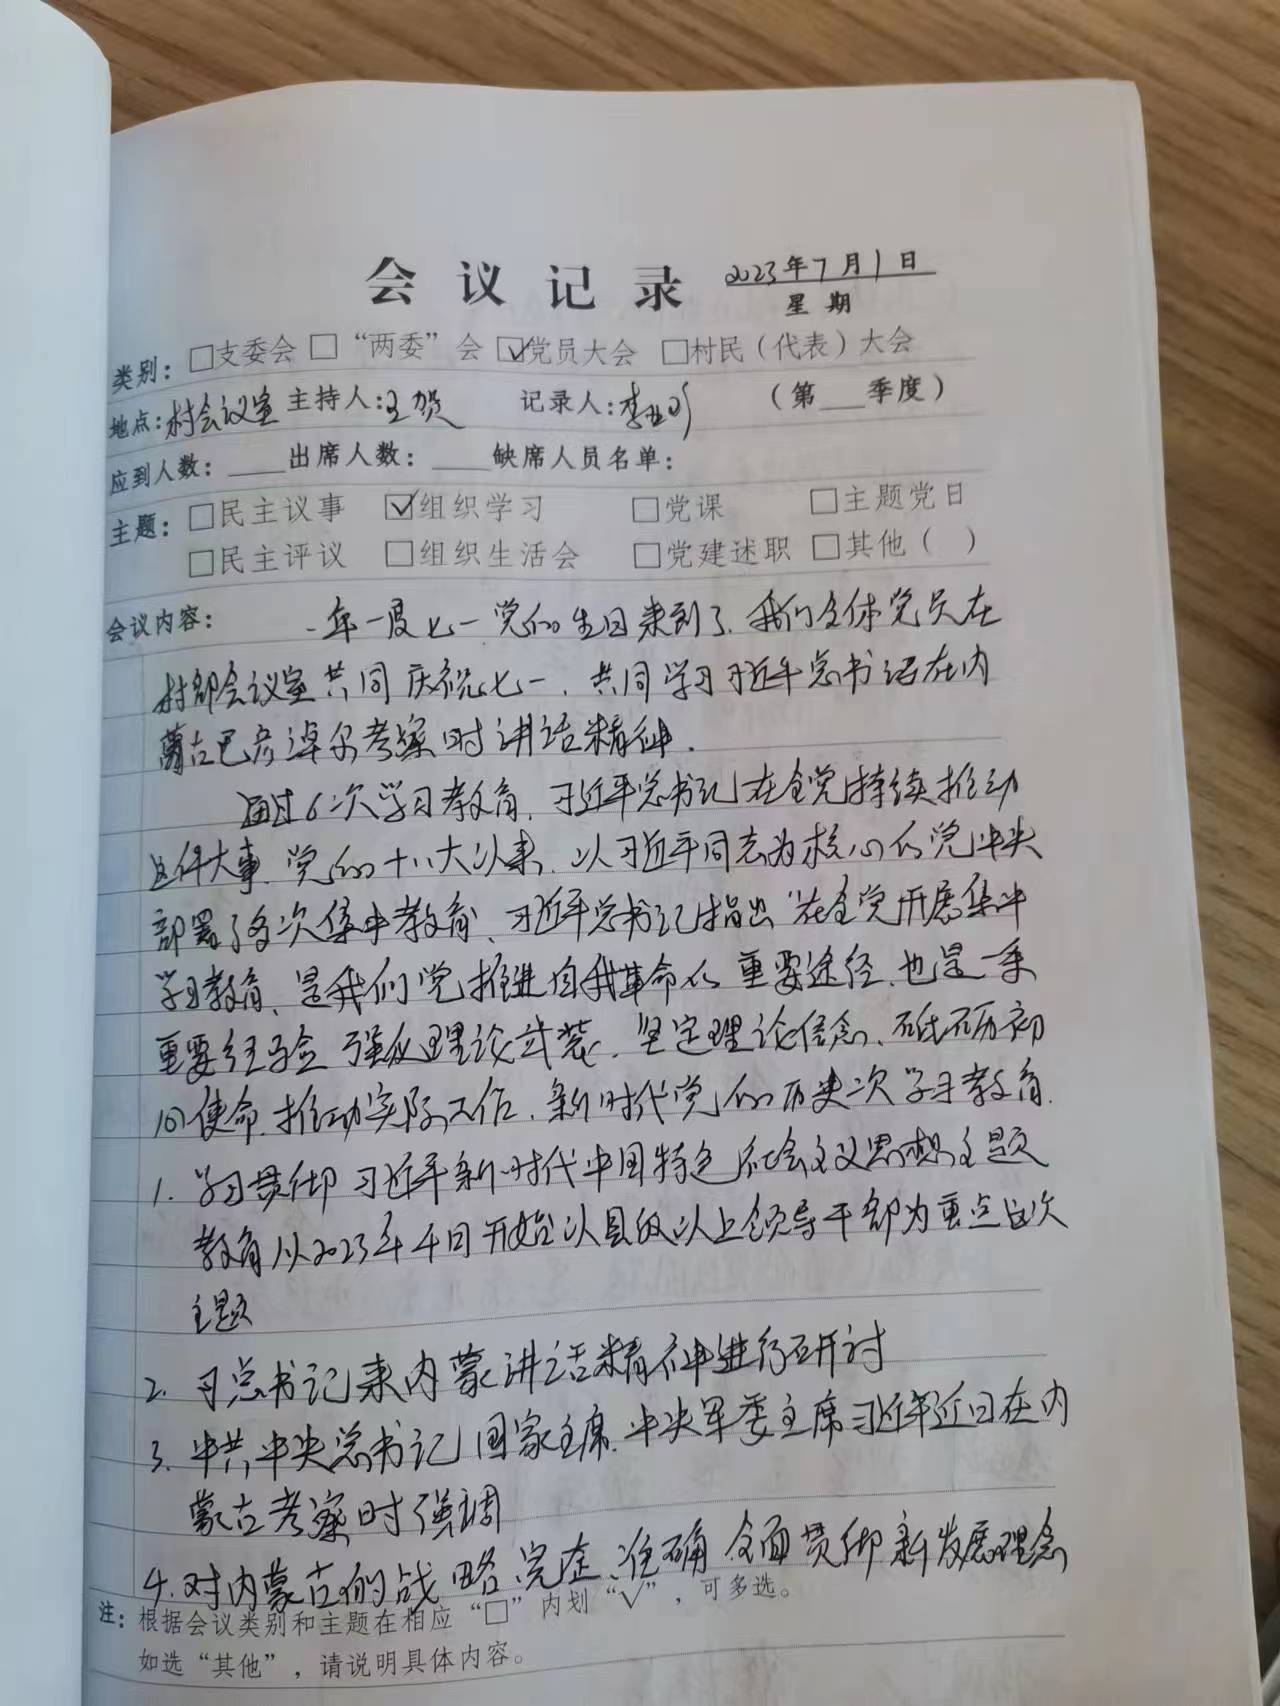 会议记录 2023年7月1日
星期
类别：□支委会 □“两委”会 ☑党员大会 □村民（代表）大会
地点：村会议室 主持人：王贺 记录人：李 （第___季度）
应到人数：____出席人数：____缺席人员名单：
主题：□民主议事 ☑组织学习 □党课 □主题党日
□民主评议 □组织生活会 □党建述职 □其他（ ）
会议内容： 一年一度七一党的生日来到了、我们全体党员在
村部会议室共同庆祝七一、共同学习习近平总书记在内
蒙古巴彦淖尔考察时讲话精神.
通过6次学习教育、习近平总书记在全党持续推动
这件大事、党的十八大以来、以习近平同志为核心的党中央
部署了多次集中教育、习近平总书记指出“在全党开展集中
学习教育、是我们党推进自我革命的重要途径、也是一条
重要经验 强化理论武装、坚定理论信念、砥砺初
心使命、推动实际工作、新时代党的历史次学习教育.
1. 学习贯彻习近平新时代中国特色社会主义思想主题
教育从2023年4日开始以县级以上领导干部为重点这次
主题
2. 习总书记来内蒙讲话精神进行研讨
3. 中共中央总书记 国家主席、中央军委主席习近平近日在内
蒙古考察时强调
4. 对内蒙古的战略 完整、准确 全面贯彻新发展理念
注：根据会议类别和主题在相应“□”内划“√”，可多选。
如选“其他”，请说明具体内容。